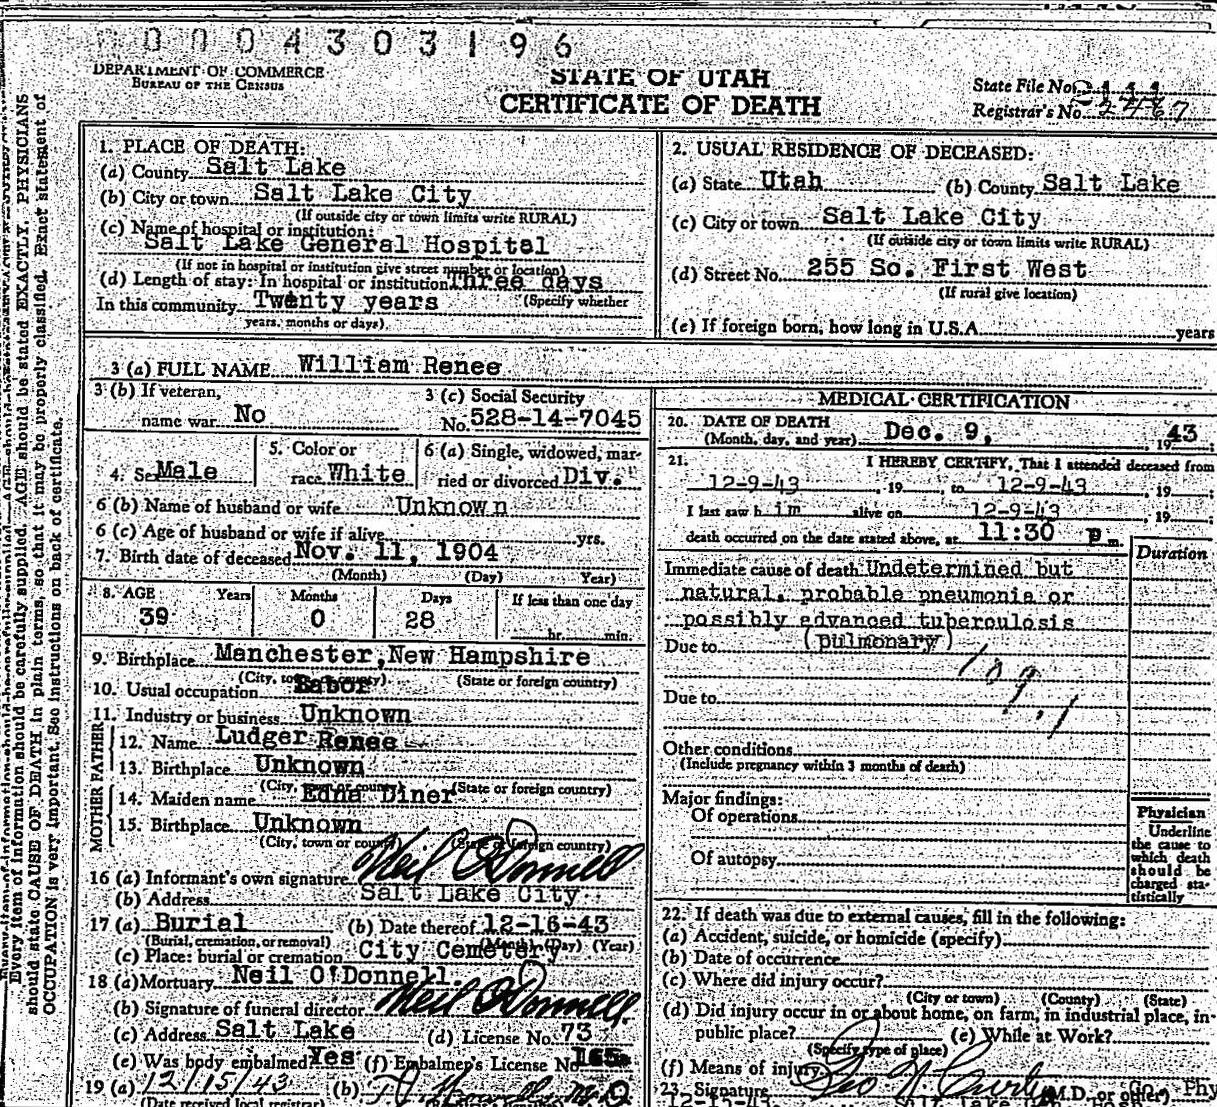 0004303196
DEPARTMENT OF COMMERCE
BUREAU OF THE CENSUS
STATE OF UTAH
CERTIFICATE OF DEATH
State File No.
Registrar's No. 2767
Every item of information should be carefully supplied. AGE should be stated EXACTLY. PHYSICIANS
should state CAUSE OF DEATH in plain terms, so that it may be properly classified. Exact statement of
OCCUPATION is very important. See instructions on back of certificate.
1. PLACE OF DEATH:
(a) County Salt Lake
(b) City or town Salt Lake City
(If outside city or town limits write RURAL)
(c) Name of hospital or institution:
Salt Lake General Hospital
(If not in hospital or institution give street number or location)
(d) Length of stay: In hospital or institution Three days
In this community Twenty years (Specify whether
years, months or days)
2. USUAL RESIDENCE OF DECEASED:
(a) State Utah (b) County Salt Lake
(c) City or town Salt Lake City
(If outside city or town limits write RURAL)
(d) Street No. 255 So. First West
(If rural give location)
(e) If foreign born, how long in U.S.A. years
3 (a) FULL NAME William Renee
3 (b) If veteran,
name war No
3 (c) Social Security
No. 528-14-7045
4. Sex Male
5. Color or
race White
6 (a) Single, widowed, mar-
ried or divorced Div.
6 (b) Name of husband or wife Unknown
6 (c) Age of husband or wife if alive yrs.
7. Birth date of deceased Nov. 11, 1904
(Month) (Day) Year)
8. AGE Years Months Days If less than one day
39 0 28 hr. min.
9. Birthplace Manchester, New Hampshire
(City, town or county) (State or foreign country)
10. Usual occupation Labor
11. Industry or business Unknown
FATHER
12. Name Ludger Renee
13. Birthplace Unknown
(City, town or county) (State or foreign country)
MOTHER
14. Maiden name Edna Diner
15. Birthplace Unknown
(City, town or county) (State or foreign country)
16 (a) Informant's own signature Neil O'Donnell
(b) Address Salt Lake City
17 (a) Burial (b) Date thereof 12-16-43
(Burial, cremation, or removal) (Month) (Day) (Year)
(c) Place: burial or cremation City Cemetery
18 (a) Mortuary Neil O'Donnell
(b) Signature of funeral director Neil O'Donnell
(c) Address Salt Lake (d) License No. 73
(e) Was body embalmed Yes (f) Embalmer's License No.
19 (a) 12/15/43 (b)
(Date received local registrar)
MEDICAL CERTIFICATION
20. DATE OF DEATH
(Month, day, and year) Dec. 9, 1943
21. I HEREBY CERTIFY, That I attended deceased from
12-9-43, 19, to 12-9-43, 19;
I last saw him alive on 12-9-43, 19;
death occurred on the date stated above, at 11:30 P m.
Duration
Immediate cause of death Undetermined but
natural, probable pneumonia or
possibly advanced tuberculosis
Due to (pulmonary)
Due to
Other conditions
(Include pregnancy within 3 months of death)
Major findings:
Of operations
Of autopsy
Physician
Underline
the cause to
which death
should be
charged sta-
tistically
22. If death was due to external causes, fill in the following:
(a) Accident, suicide, or homicide (specify)
(b) Date of occurrence
(c) Where did injury occur?
(City or town) (County) (State)
(d) Did injury occur in or about home, on farm, in industrial place, in-
public place? (e) While at Work?
(Specify type of place)
(f) Means of injury
23. Signature (M.D. or other) Co. Phy